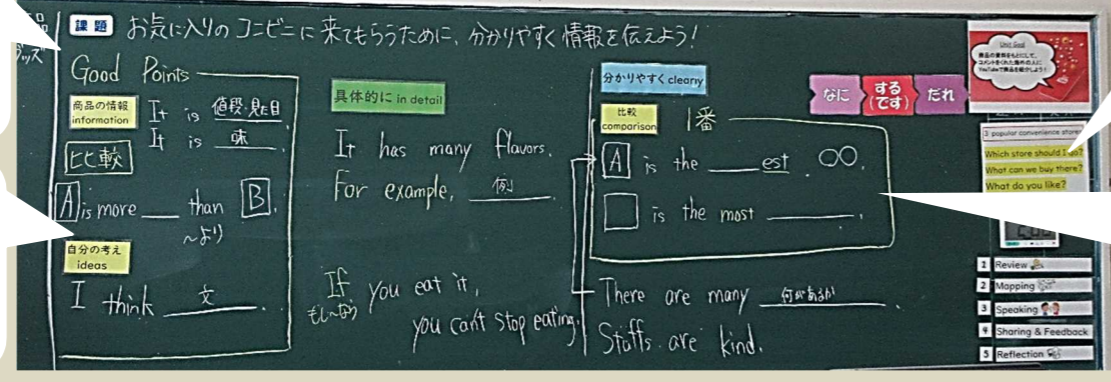 課題 お気に入りのコンビニに来てもらうために、分かりやすく情報を伝えよう!
Good Points
商品の情報
information
It is 値段・見た目.
It is 味.
比較
A is more ___ than B.
～より
自分の考え
ideas
I think 文.
具体的に in detail
It has many flavors.
For example, 例.
If you eat it,
もし～なら
you can't stop eating.
分かりやすく clearly
比較
comparison
1番
A is the ___ est.
is the most ___.
There are many 何があるか.
Staffs are kind.
なに
する
(です)
だれ
Unit Goal
3 popular convenience stores
Which store should I go?
What can we buy there?
What do you like?
1 Review
2 Mapping
3 Speaking
4 Sharing & Feedback
5 Reflection